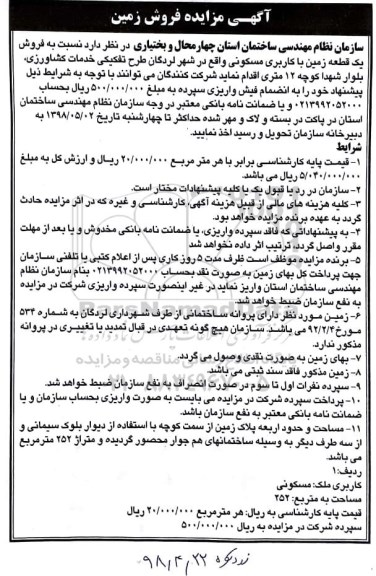 آگهـی مزایده فروش زمین
سازمان نظام مهندسی ساختمان استان چهارمحال و بختیاری در نظر دارد نسبت به فروش
یک قطعه زمین با کاربری مسکونی واقع در شهر لردگان طرح تفکیکی خدمات کشاورزی،
بلوار شهدا کوچه ۱۲ متری اقدام نماید شرکت کنندگان می توانند با توجه به شرایط ذیل
پیشنهاد خود را به انضمام فیش واریزی سپرده به مبلغ ۵۰۰/۰۰۰/۰۰۰ ریال بحساب
۰۲۱۳۹۹۲۰۵۲۰۰۰ و یا ضمانت نامه بانکی معتبر در وجه سازمان نظام مهندسی ساختمان
استان در پاکت در بسته و لاک و مهر شده حداکثر تا چهارشنبه تاریخ ۱۳۹۸/۰۵/۰۲ به
دبیرخانه سازمان تحویل و رسید اخذ نمایید.
شرایط
۱- قیمت پایه کارشناسی برابر با هر متر مربع ۲۰/۰۰۰/۰۰۰ ریال و ارزش کل به مبلغ
۵/۰۴۰/۰۰۰/۰۰۰ ریال می باشد.
۲- سازمان در رد یا قبول یک یا کلیه پیشنهادات مختار است.
۳- کلیه هزینه های مالی از قبیل هزینه آگهی، کارشناسی و غیره که در اثر مزایده حادث
گردد به عهده برنده مزایده خواهد بود.
۴- به پیشنهاداتی که فاقد سپرده واریزی، یا ضمانت نامه بانکی مخدوش و یا بعد از مهلت
مقرر واصل گردد، ترتیب اثر داده نخواهد شد
۵- برنده مزایده موظف است ظرف مدت ۵ روز کاری پس از اعلام کتبی یا تلفنی سازمان
جهت پرداخت کل بهای زمین به صورت نقد بحساب ۰۲۱۳۹۹۲۰۵۲۰۰۰ بنام سازمان نظام
مهندسی ساختمان استان واریز نماید در غیر اینصورت سپرده واریزی شرکت در مزایده
به نفع سازمان ضبط خواهد شد.
۶- زمین مورد نظر دارای پروانه ساختمانی از طرف شهرداری لردگان به شماره ۵۳۴
مورخ ۹۲/۲/۴ می باشد. سازمان هیچ گونه تعهدی در قبال تمدید یا تغییری در پروانه
مذکور ندارد.
۷- بهای زمین به صورت نقدی وصول می گردد.
۸- زمین مذکور فاقد سند ثبتی می باشد.
۹- سپرده نفرات اول تا سوم در صورت انصراف به نفع سازمان ضبط خواهد شد.
۱۰- پرداخت سپرده شرکت در مزایده می بایست به صورت واریزی بحساب سازمان و یا
ضمانت نامه بانکی معتبر به نفع سازمان باشد.
۱۱- مساحت و حدود اربعه پلاک زمین از سمت کوچه با استفاده از دیوار بلوک سیمانی و
از سه طرف دیگر به وسیله ساختمانهای هم جوار محصور گردیده و متراژ ۲۵۲ مترمربع
می باشد.
ردیف: ۱
کاربری ملک: مسکونی
مساحت به متربع: ۲۵۲
قیمت پایه کارشناسی به ریال: هر مترمربع ۲۰/۰۰۰/۰۰۰ ریال
سپرده شرکت در مزایده به ریال ۵۰۰/۰۰۰/۰۰۰
۹۸/۴/۲۲